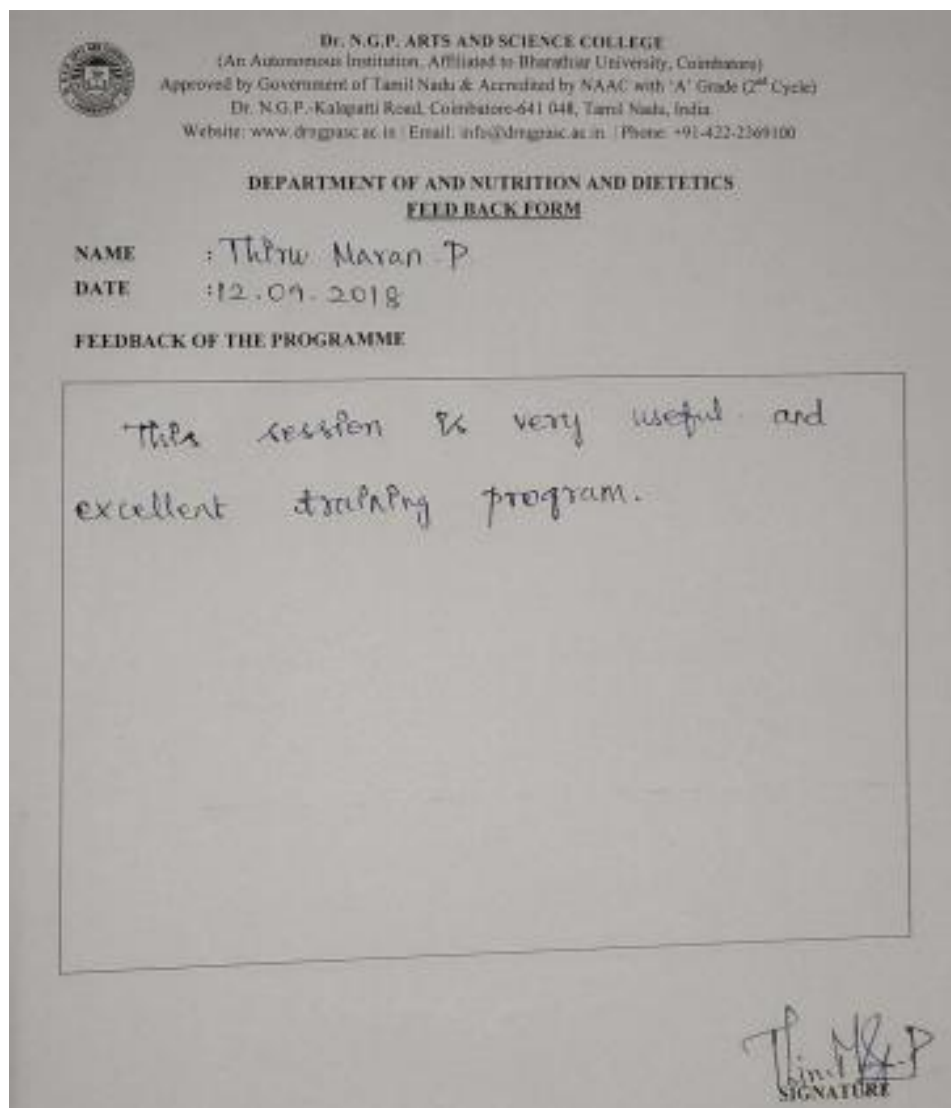 Dr. N.G.P. ARTS AND SCIENCE COLLEGE
(An Autonomous Institution, Affiliated to Bharathiar University, Coimbatore)
Approved by Government of Tamil Nadu & Accredited by NAAC with 'A' Grade (2nd Cycle)
Dr. N.G.P.-Kalapatti Road, Coimbatore-641 048, Tamil Nadu, India
Website: www.drngpasc.ac.in | Email: info@drngpasc.ac.in | Phone: +91-422-2369100
DEPARTMENT OF AND NUTRITION AND DIETETICS
FEED BACK FORM
NAME : Thiru Maran P
DATE :12.09.2018
FEEDBACK OF THE PROGRAMME
This session is very useful and
excellent training program.
SIGNATURE